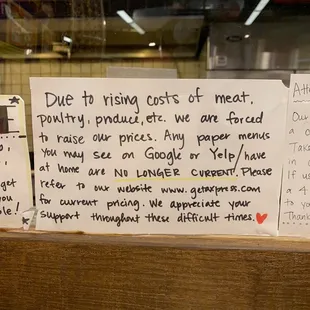 Due to rising costs of meat,
poultry, produce, etc. we are forced
to raise our prices. Any paper menus
you may see on Google or Yelp/have
at home are NO LONGER CURRENT. Please
refer to our website www.getaxpress.com
for current pricing. We appreciate your
support throughout these difficult times.
get
you
le!
Atte
Our
a c
Take
in
if u
a 4
to yo
Thank